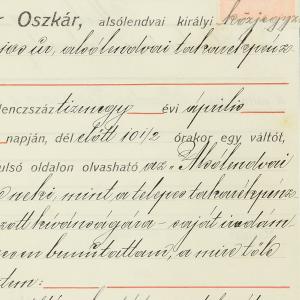 r Oszkár, alsólendvai királyi közjegyz
úr, alsólendvai takarékpénz
lenczszáz tizenegy évi április
napján, dél előtt 10 1/2 órakor egy váltót,
ulsó oldalon olvasható az „Alsólendvai
neki, mint a telepes takarékpénz
kívánságára - saját irodám
bemutattam, a mire tőle
tum: